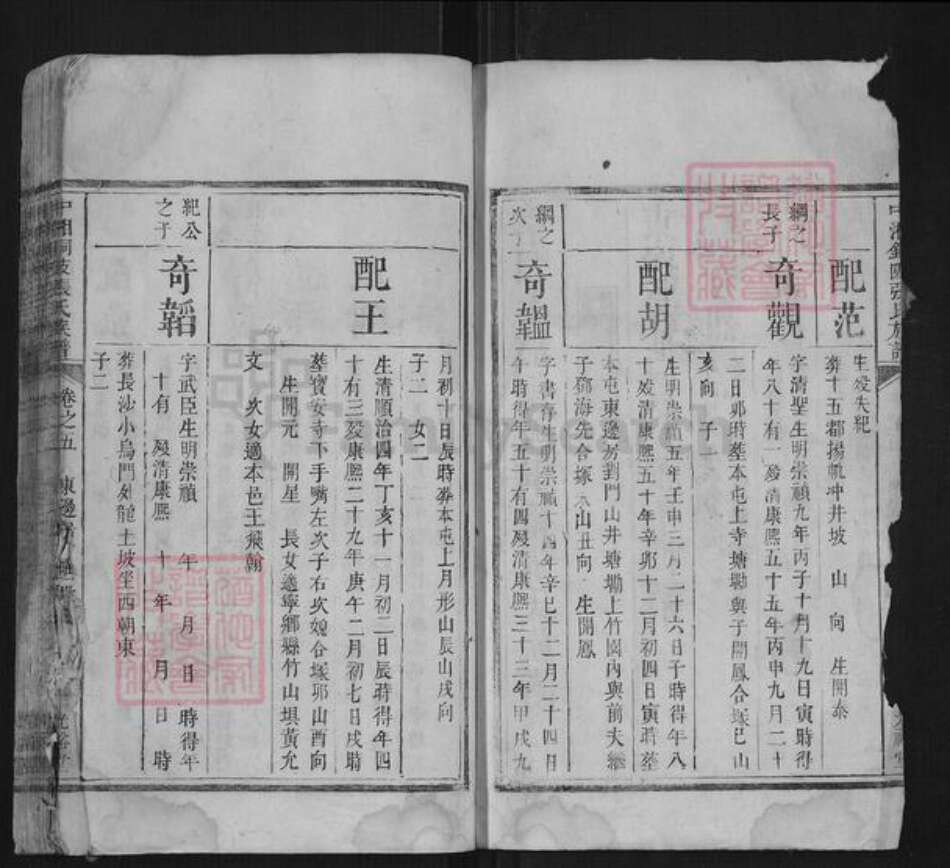 配范
生歿失紀
葬十五都揚帆冲井坡 山 向 生開泰
綱之
長子
奇觀
字清聖生明崇禎九年丙子十月十九日寅時得
年八十有一歿清康熙五十五年丙申九月二十
二日卯時葬本屯上寺塘墈與子開鳳合塚巳山
亥向 子一
配胡
生明崇禎五年壬申三月二十六日子時得年八
十歿清康熙五十年辛卯十二月初四日寅時葬
本屯東邊房對門山井塘墈上竹園內與前夫
子鄧海先合塚 山丑向 生開鳳
綱之
次子
奇韞
字書存生明崇禎十四年辛巳十二月二十四日
午時得年五十有四歿清康熙三十三年甲戌九
月初十日辰時葬本屯上月形山辰山戌向
子二 女二
配王
生清順治四年丁亥十一月初二日辰時得年四
十有三歿康熙二十九年庚午二月初七日戌時
葬寶安寺下手嘴左次子右次媳合塚卯山酉向
生開元 開星 長女適寧鄉縣竹山塅黃允
文 次女適本邑王飛翰
紀公
之子
奇韜
字武臣生明崇禎 年 月 日 時得年
十有 歿清康熙 十 年 月 日 時
葬長沙小烏門處龍土坡坐西朝東
子二
卷之五